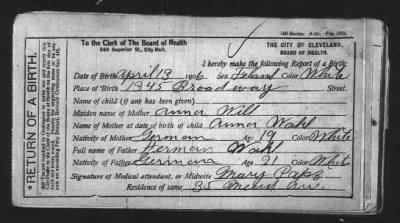 To the Clerk of The Board of Health
340 Superior St., City Hall.
THE CITY OF CLEVELAND,
BOARD OF HEALTH.
RETURN OF A BIRTH.
I hereby make the following Report of a Birth:
Date of Birth April 13 1906 Sex Color White
Place of Birth 1345 Broadway Street.
Name of child (if any has been given)
Maiden name of Mother Anna Will
Name of Mother at date of birth of child Anna Wahl
Nativity of Mother German Age 19 Color White
Full name of Father Herman Wahl
Nativity of Father Germany Age 21 Color White
Signature of Medical attendant, or Midwife Mary
Residence of same 35 Ave.